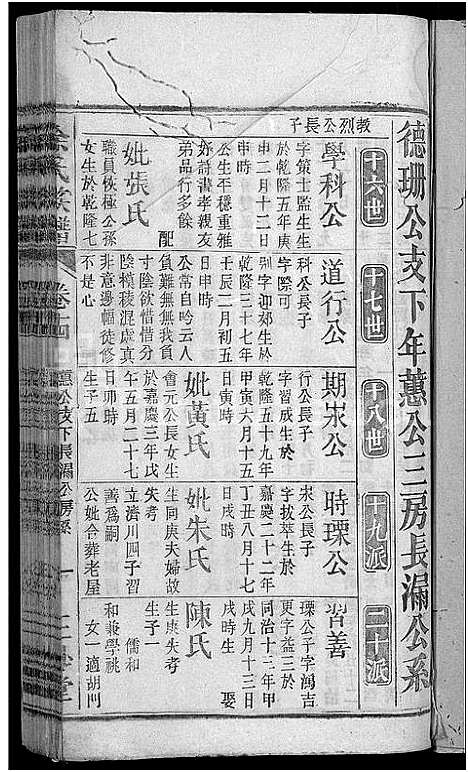 德珊公支下年蕙公三房長漏公系
十六世
十七世
十八世
十九派
二十派
教烈公長子
學科公
字策士監生生
於乾隆五年庚
申二月十二日
申時
公生平穩重雅
好詩書孝親友
弟品行多餘
配
妣張氏
職員俠極公孫
女生於乾隆七
道行公
科公長子
字際可
別字迎郊生於
乾隆三十七年
壬辰二月初五
日申時
公常自吟云人
負難無無我負
寸陰欲惜惜分
陰模稜混虛真
非意邊幅徒修
不是心
期宋公
行公長子
字習成生於
乾隆五十九年
甲寅六月十五
日寅時
妣黃氏
會元公長女生
於嘉慶三年戊
午五月二十七
日卯時
生子五
時瑮公
宋公長子
字拔萃生於
嘉慶二十二年
丁丑八月十七
日戌時
妣朱氏
生同庚夫婦故
失考
立濟川四子習
善爲嗣
公妣合葬老屋
習善
瑮公子字鴻吉
更字益三於
同治十三年甲
戌九月十三日
戌時生
娶
陳氏
生庚失考
生子一
儒和
和兼學祧
女一適胡門
徐氏族譜
卷十四
蕙公支下長漏公房系
一